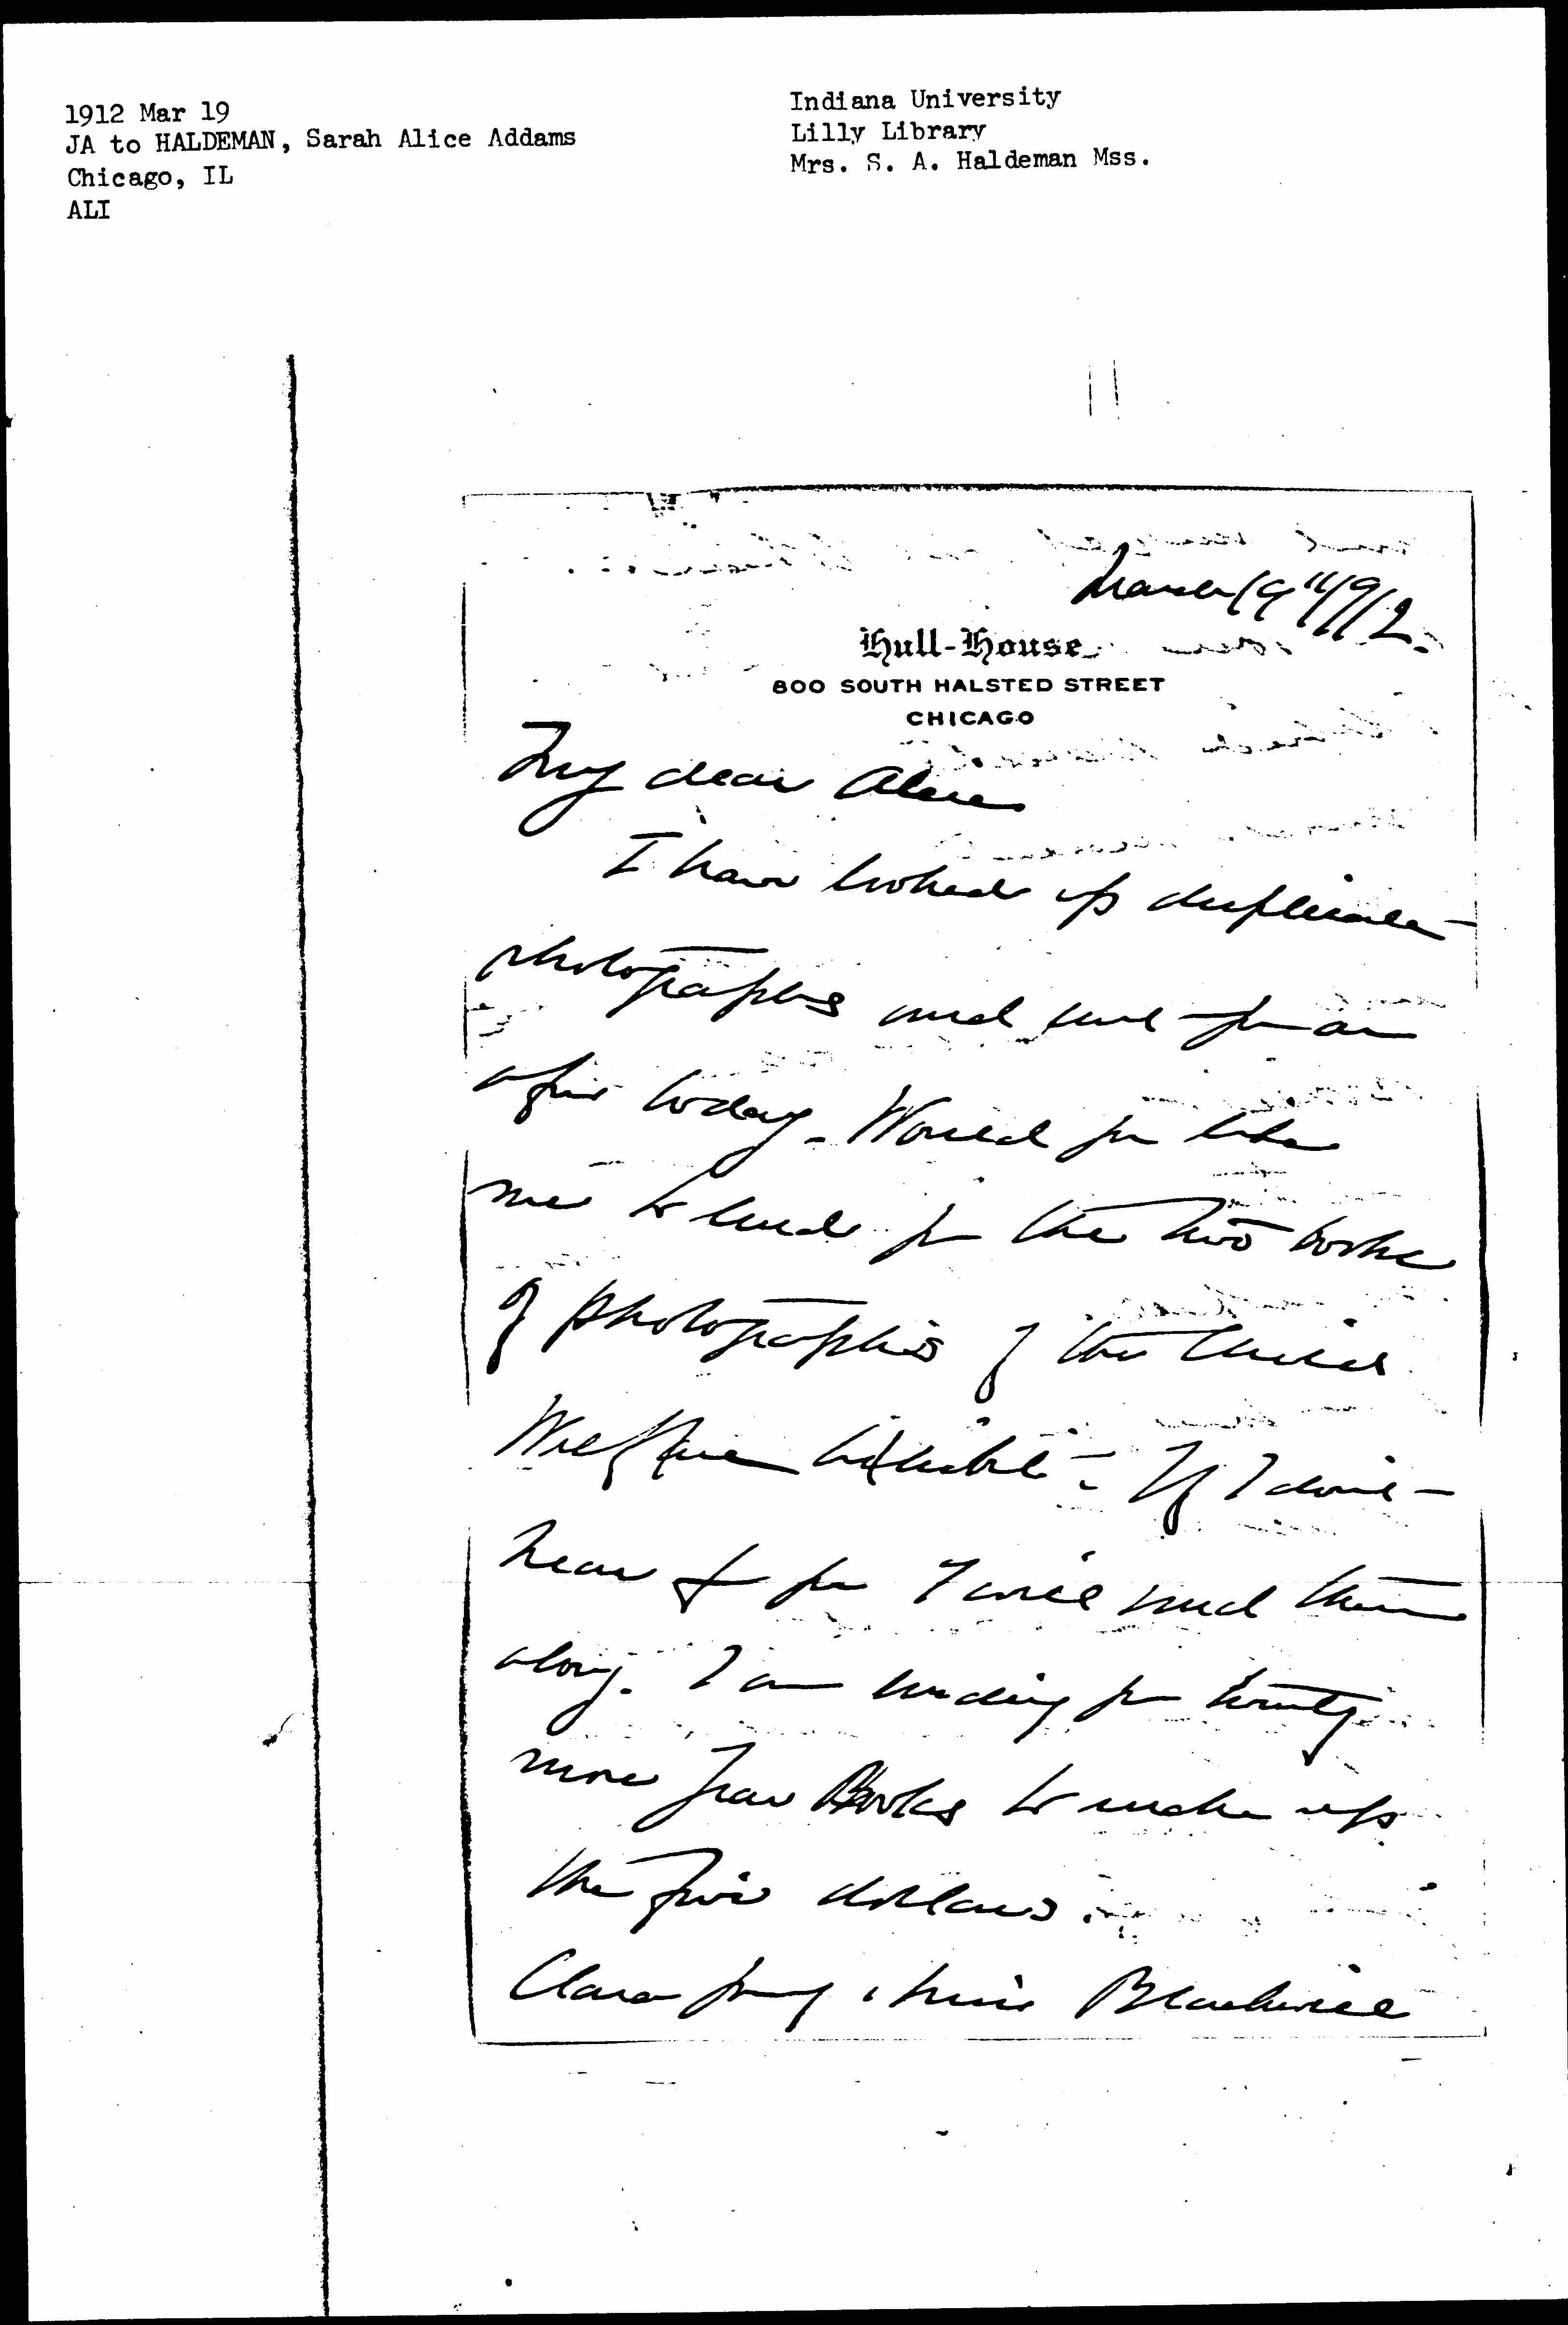 1912 Mar 19
JA to HALDEMAN, Sarah Alice Addams
Chicago, IL
ALI
Indiana University
Lilly Library
Mrs. S. A. Haldeman Mss.
March 19" 1912.
Hull-House
800 SOUTH HALSTED STREET
CHICAGO
My dear Alice
I have looked up duplicate
photographs and send you a
few today. Would you like
me to send you the two books
of photographs of the Child
Welfare Exhibit – If I don't
hear from you I will send them
along. I am sending you twenty
more Year Books to make up
the five dollars.
Clara Young & Miss